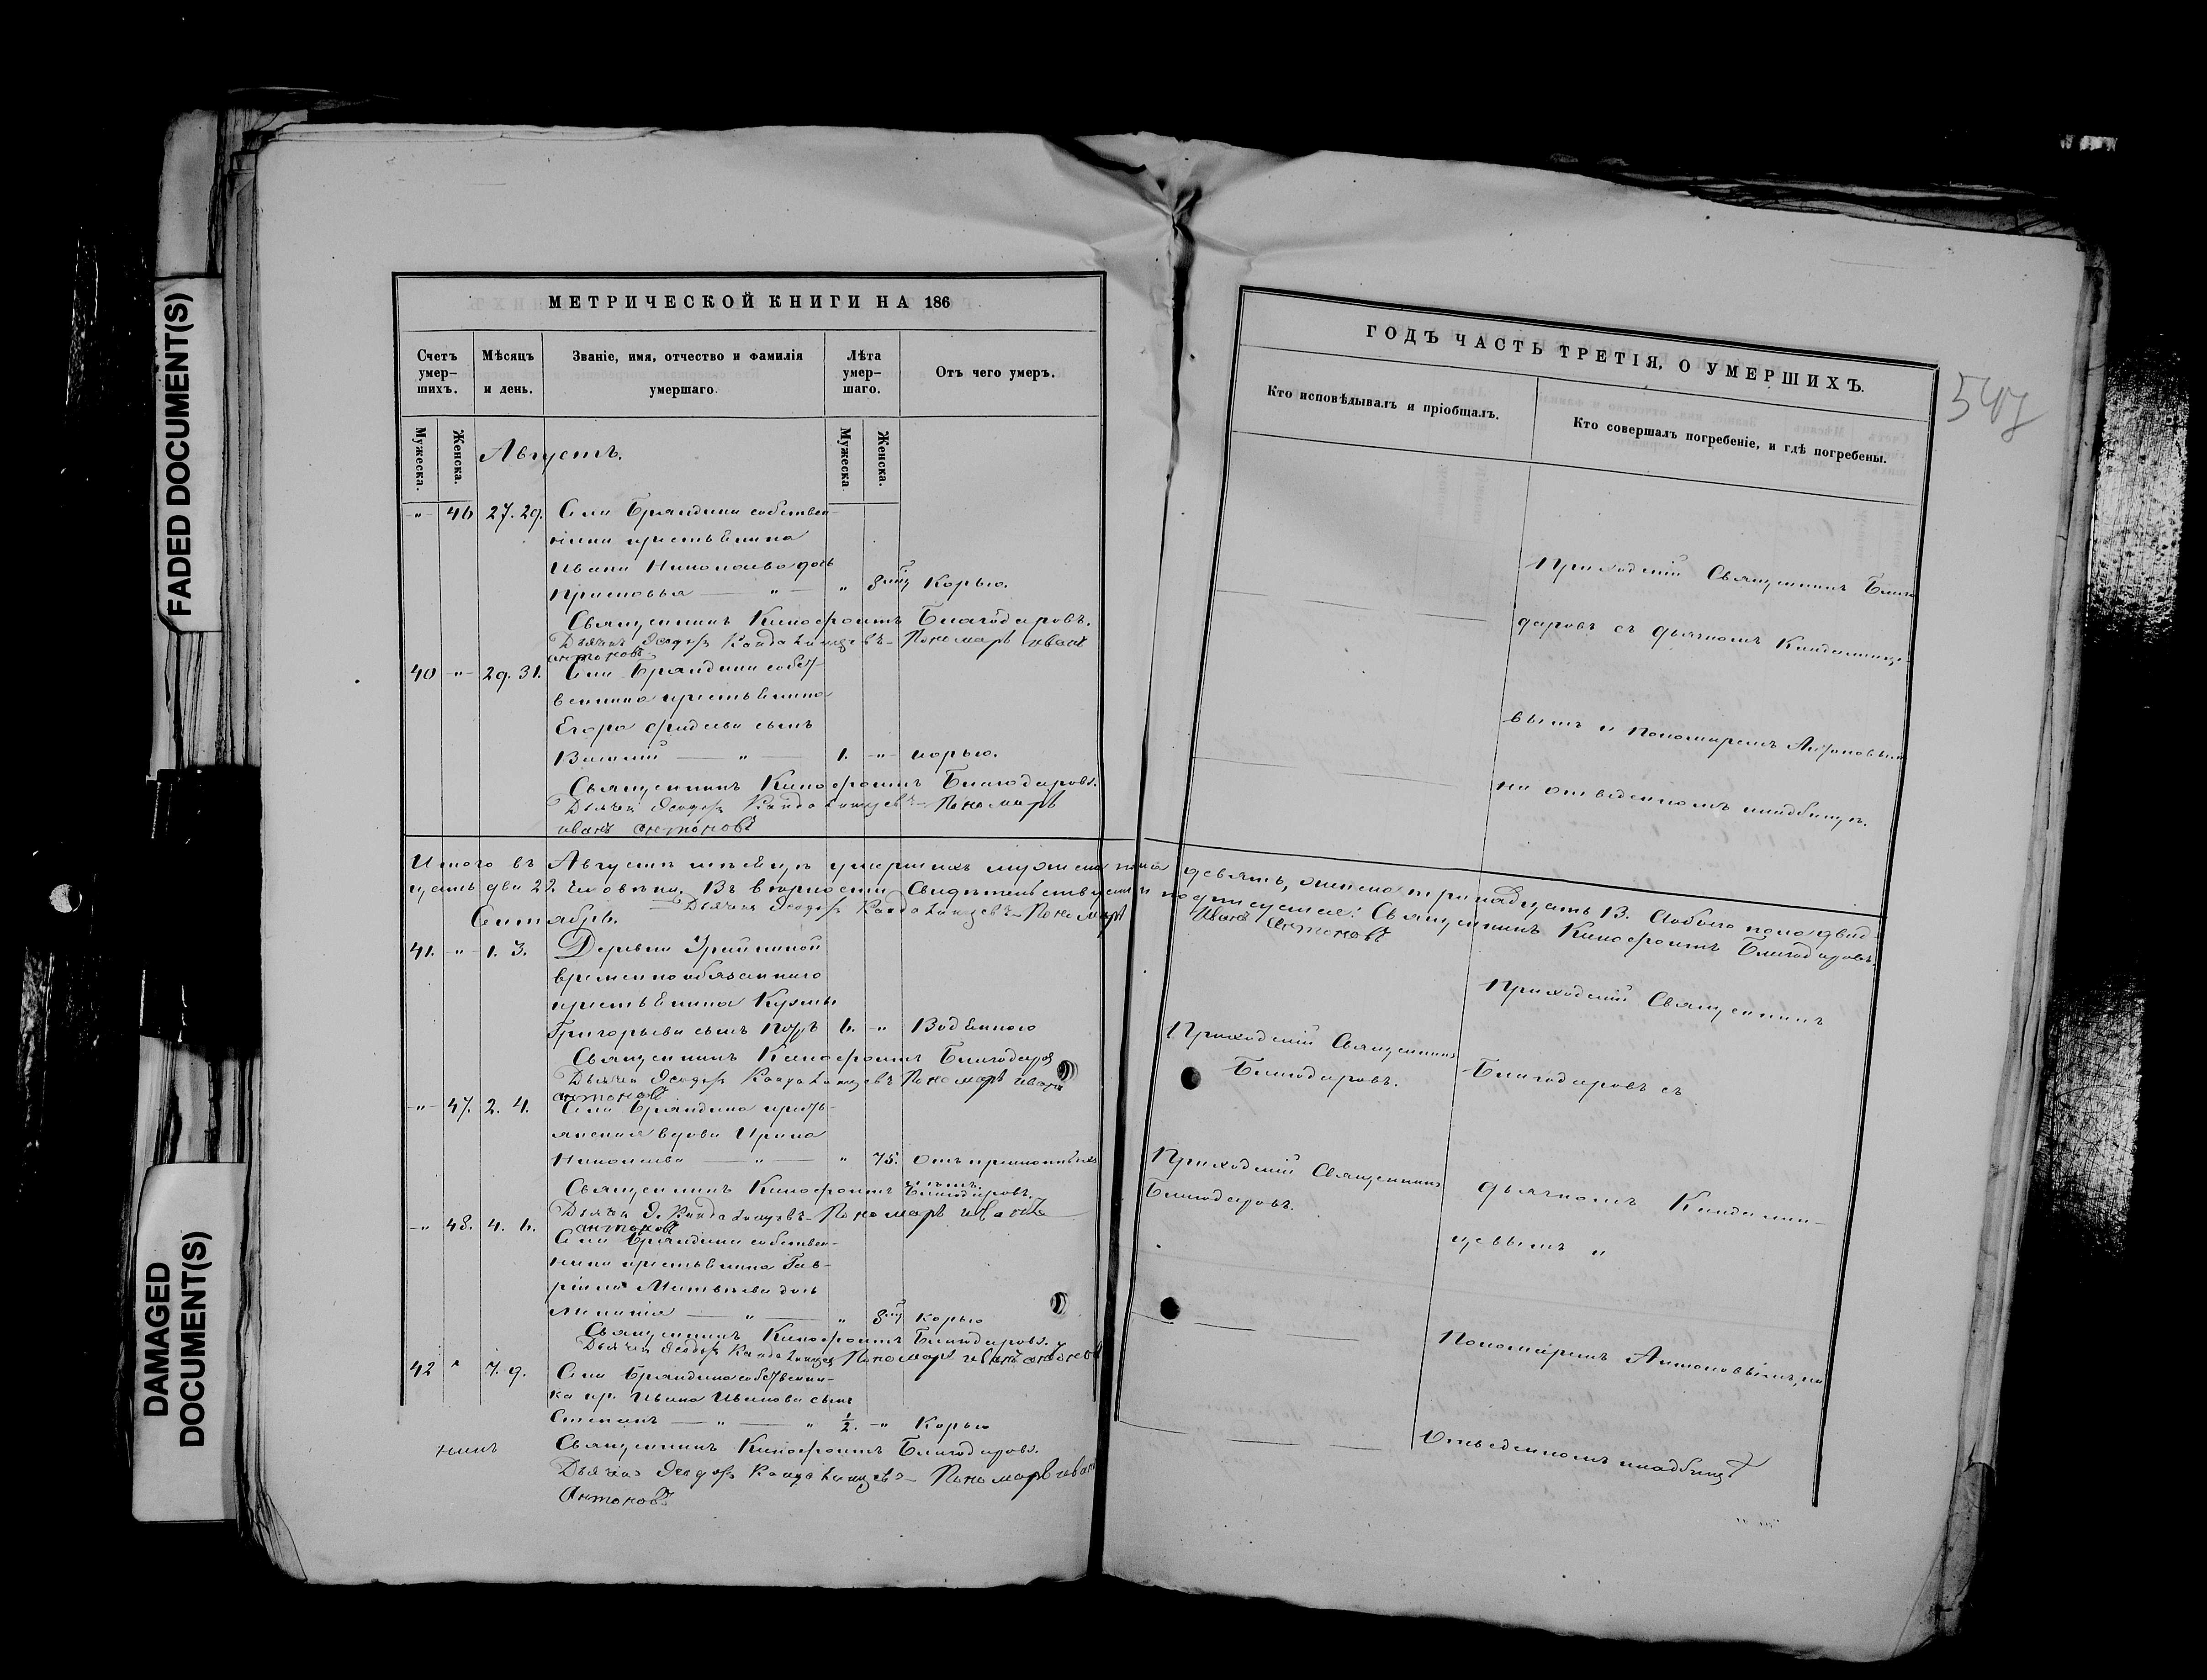 FADED DOCUMENT(S)
DAMAGED
DOCUMENT(S)
МЕТРИЧЕСКОЙ КНИГИ НА 186
Счетъ умер-шихъ.
Мѣсяцъ и день.
Званіе, имя, отчество и фамилія умершаго.
Лѣта умер-шаго.
Отъ чего умеръ.
Мужеска.
Женска.
Мужеска
Женска.
Августъ.
-"- 46 27. 29. Села Брандина собствен-
крестьянина
Ивана Николаева дочь
" — " 8 Корью.
Священникъ Ксенофонтъ Благодаровъ.
Дьячекъ Ѳеодоръ Пономарь Иванъ
Антоновъ
40 -"- 29. 31. Села Брандина собст-
венника крестьянина
Егора сынъ
— " — 1. -"- корью.
Священникъ Ксенофонтъ Благодаровъ.
Дьячекъ Ѳеодоръ Пономарь
Иванъ Антоновъ
Итого въ Августѣ мѣсяцѣ умершихъ мужеска пола девять, женска тринадцать 13. Обоего пола двад-
цать два 22 человѣка. Въ вѣрности свидѣтельствуемъ и подписуемся: Священникъ Ксенофонтъ Благодаровъ.
Дьячекъ Ѳеодоръ Пономарь Иванъ Антоновъ
Сентябрь.
41. -"- 1. 3. Деревни
временнообязаннаго
крестьянина Кузмы
Григорьева сынъ Петръ 6. -"- Водяного
Священникъ Ксенофонтъ Благодаров
Дьячекъ Ѳеодоръ Пономарь Иванъ
Антоновъ
-"- 47. 2. 4. Села Брандина кресть-
янская вдова Ирина
Николаева — " — " 75.
Священникъ Ксенофонтъ Благодаровъ.
Дьячекъ Ѳ. Пономарь Иванъ
Антоновъ
-"- 48. 4. 6. Села Брандина собствен-
ника крестьянина Гав-
ріила Матвѣева дочь
Меланія — " — " 8 корью
Священникъ Ксенофонтъ Благодаровъ.
Дьячекъ Ѳеодоръ Пономарь Иванъ Антоновъ
42 " 7. 9. Села Брандина собственни-
ка кр. Ивана Иванова сынъ
Степанъ — " — " ½. -" Корью
Священникъ Ксенофонтъ Благодаровъ.
Дьячекъ Ѳеодоръ Пономарь Иванъ
Антоновъ
ГОДЪ ЧАСТЬ ТРЕТІЯ, О УМЕРШИХЪ.
Кто исповѣдывалъ и пріобщалъ.
Кто совершалъ погребеніе, и гдѣ погребены.
Приходскій Священникъ Благо
даровъ съ дьячкомъ
вымъ и пономаремъ Антоновымъ
на отведенномъ кладбищѣ.
Приходскій Священникъ
Благодаровъ.
Приходскій Священникъ
Благодаровъ.
Приходскій Священникъ
Благодаровъ съ
дьячкомъ
цевымъ и
Пономаремъ Антоновымъ, на
Отведенномъ кладбищѣ